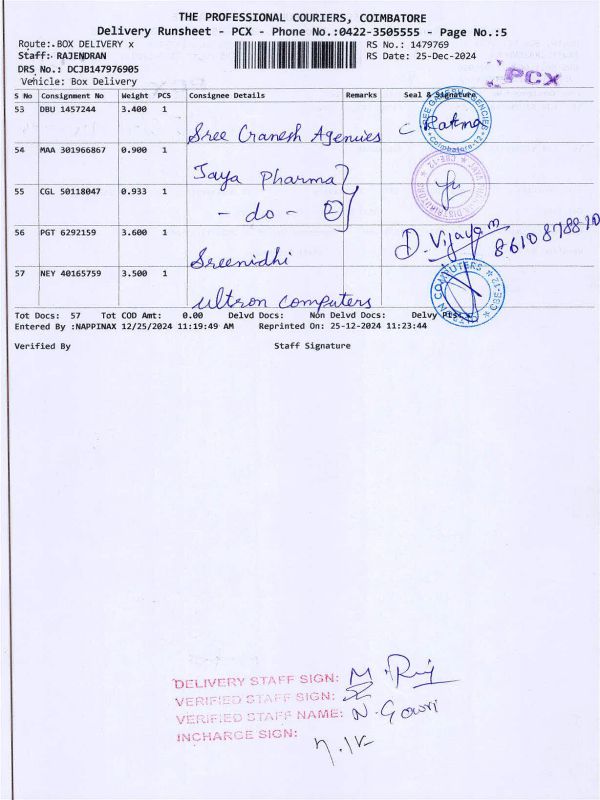 THE PROFESSIONAL COURIERS, COIMBATORE
Delivery Runsheet - PCX - Phone No.:0422-3505555 - Page No.:5
Route: BOX DELIVERY x RS No.: 1479769
Staff: RAJENDRAN RS Date: 25-Dec-2024
DRS No.: DCJB147976905
Vehicle: Box Delivery
PCX
S No Consignment No Weight PCS Consignee Details Remarks Seal & Signature
53 DBU 1457244 3.400 1
Sree Granesh Agencies
SREE GANESH AGENCIES Coimbatore-12
54 MAA 301966867 0.900 1
Jaya Pharma
55 CGL 50118047 0.933 1
- do - 2
56 PGT 6292159 3.600 1
Sreenidhi D. Vijayam
57 NEY 40165759 3.500 1
Ultron Computers
ULTRON COMPUTERS CBE-12
Tot Docs: 57 Tot COD Amt: 0.00 Delvd Docs: Non Delvd Docs: Delvy Pts:
Entered By :NAPPINAX 12/25/2024 11:19:49 AM Reprinted On: 25-12-2024 11:23:44
Verified By Staff Signature
DELIVERY STAFF SIGN:
VERIFIED STAFF SIGN:
VERIFIED STAFF NAME: N. Gowri
INCHARGE SIGN: